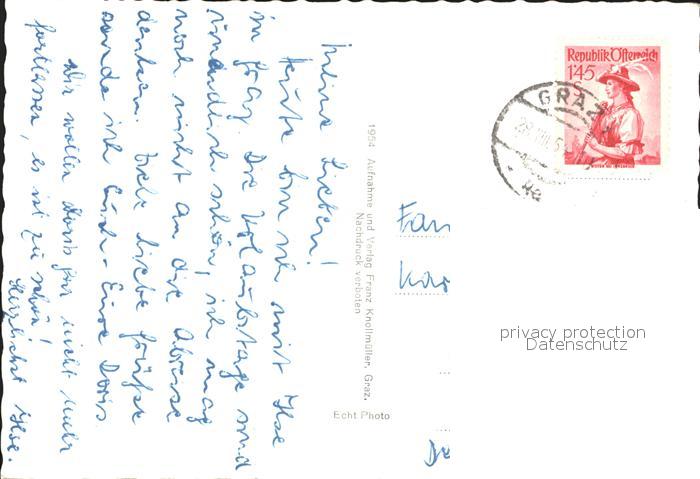 Meine Lieben!
Heute bin ich mit Ilse
in Graz. Die Urlaubstage sind
unendlich schön, ich mag
noch nicht an die Abreise
denken. Viele liebe Grüße
sende ich Euch - Eure Doris
Wir wollen Doris gar nicht mehr
fortlassen, es ist zu schön!
Herzlichst Ilse.
1954 Aufnahme und Verlag Franz Knollmüller, Graz.
Nachdruck verboten
Echt Photo
Republik Österreich
1'45
S
GRAZ
Fam
Kar
privacy protection
Datenschutz